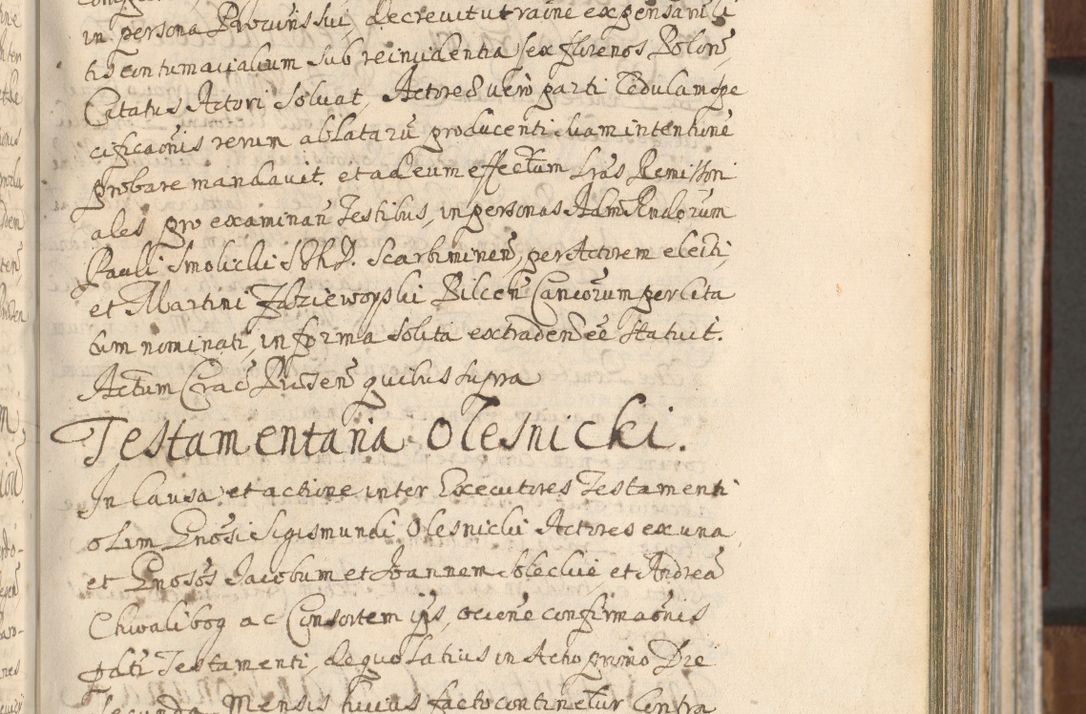 in persona Procuris sui, decrevit ut raine expensarũ li
tis contumacialium sub reincidentia sex florenos Polon̄,
Citatus Actori Solvat, Actore vero parti Cedulam spe
cificaonis rerum ablatarũ producenti suam intentione
probare mandavit. et ad eum effectum Lrãs Remissori
ales pro examinan̄ Testibus, in personas Adm̃ Rndorum
Pauli Smolicki SRh D. Scarbimiren̄, per Actorem electi,
et Martini Zdzieworski Bilcen̄ Canconum per Cita
tum nominati, in forma Solita extraden̄ eẽ Statuit.
Actum Crac̄ Presen̄ quibus supra
Testamentaria Olesnicki.
In Causa et actione inter Executores Testamenti
olim Gnosi Sigismundi Olesnicki Actores ex una,
et Gnosos Jacobum et Joannem Obleckie et Andreã
Chwalibog ac Consortem ejs, occne confirmaonis
pdti Testamenti, de quo latius in Actio primo Die
Secunda Mensis huius facto continetur Contra